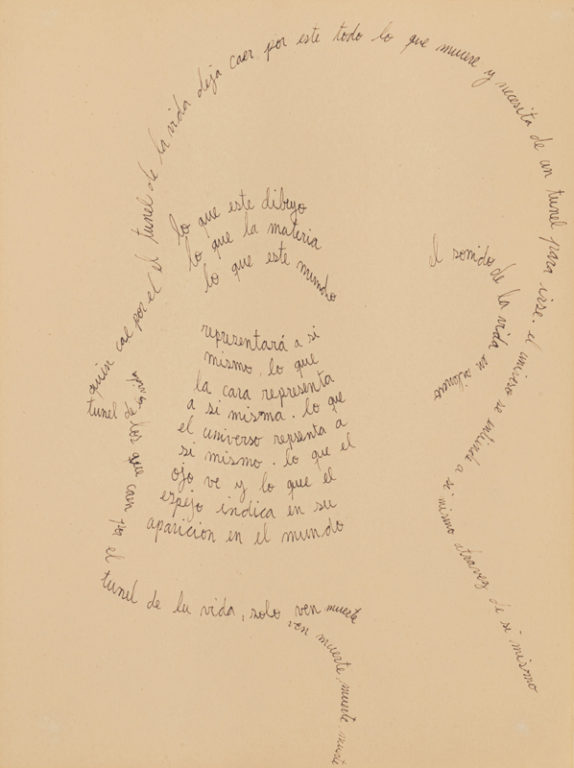 quien cae por el el tunel de la vida deja caer por este todo lo que muere y necesita de un tunel para irse. el universo se entiende a si mismo atravez de si mismo
lo que este dibujo
lo que la materia
lo que este mundo
el sonido de la vida en
representará a si
mismo. lo que
la cara representa
a si misma. lo que
el universo repsenta a
si mismo. lo que el
ojo ve y lo que el
espejo indica en su
aparicion en el mundo
tunel
de los que caen por el tunel de la vida, solo ven muerte
ven muerte muerte